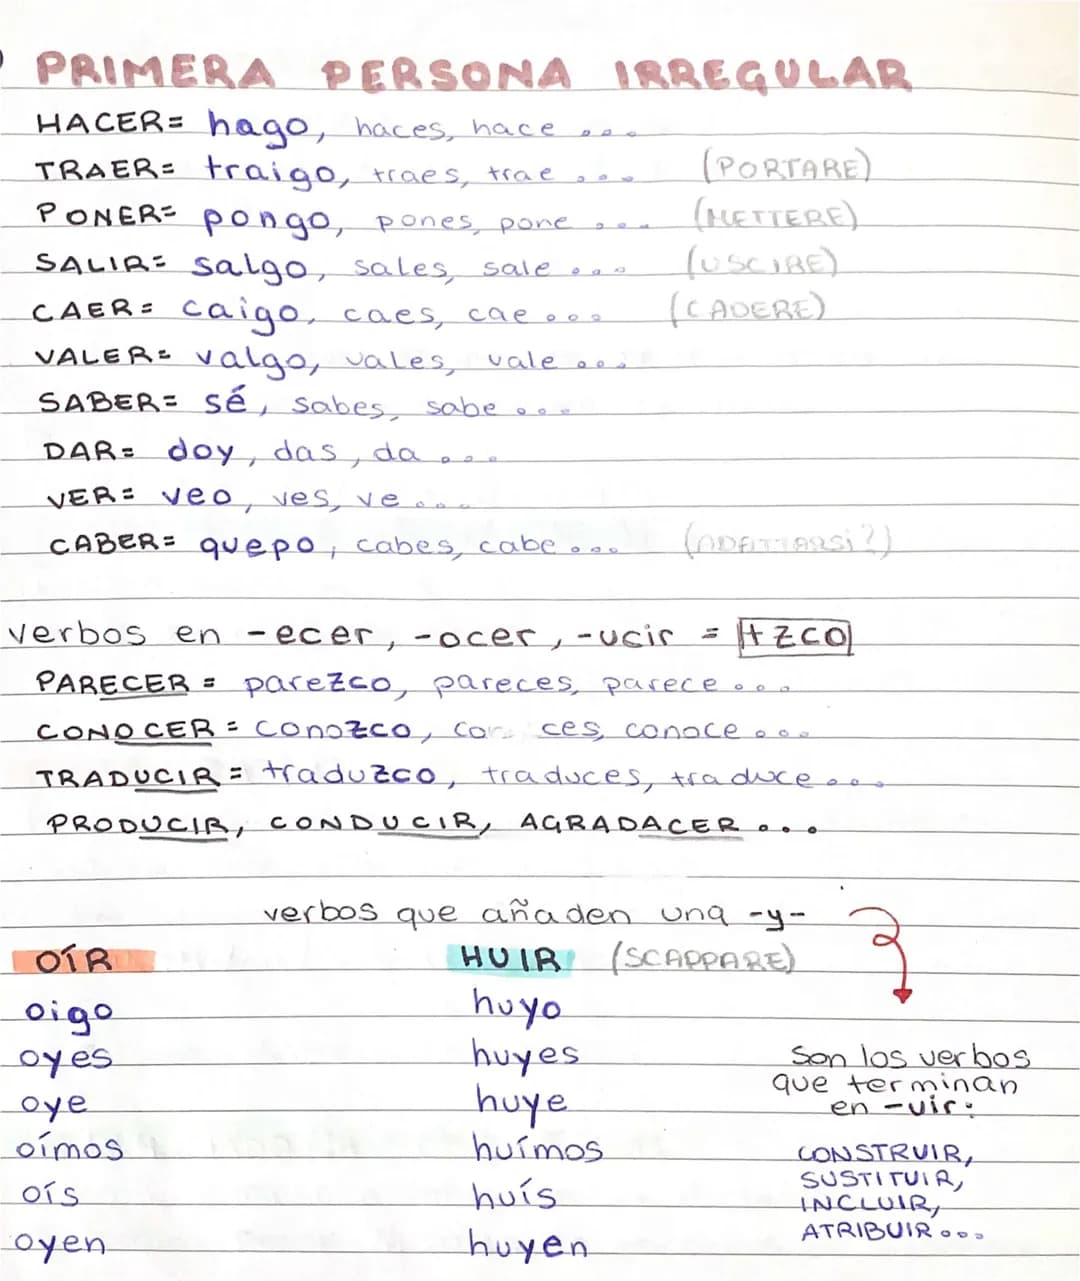 PRIMERA PERSONA IRREGULAR
HACER= hago, haces, hace ...
TRAER= traigo, traes, trae ... (PORTARE)
PONER= pongo, pones, pone ... (METTERE)
SALIR= salgo, sales, sale ... (USCIRE)
CAER= caigo, caes, cae ... (CADERE)
VALER= valgo, vales, vale ...
SABER= sé, sabes, sabe ...
DAR= doy, das, da ...
VER= veo, ves, ve ...
CABER= quepo, cabes, cabe ... (ADATTARSI?)
verbos en -ecer, -ocer, -ucir = +ZCO
PARECER = parezco, pareces, parece ...
CONOCER = conozco, ces, conoce ...
TRADUCIR = traduzco, traduces, traduce ...
PRODUCIR, CONDUCIR, AGRADACER ...
verbos que añaden una -y-
OÍR HUIR (SCAPPARE)
oigo huyo
oyes huyes
oye huye
oímos huímos
oís huís
oyen huyen
Son los verbos
que terminan
en -uir:
CONSTRUIR,
SUSTITUIR,
INCLUIR,
ATRIBUIR ...